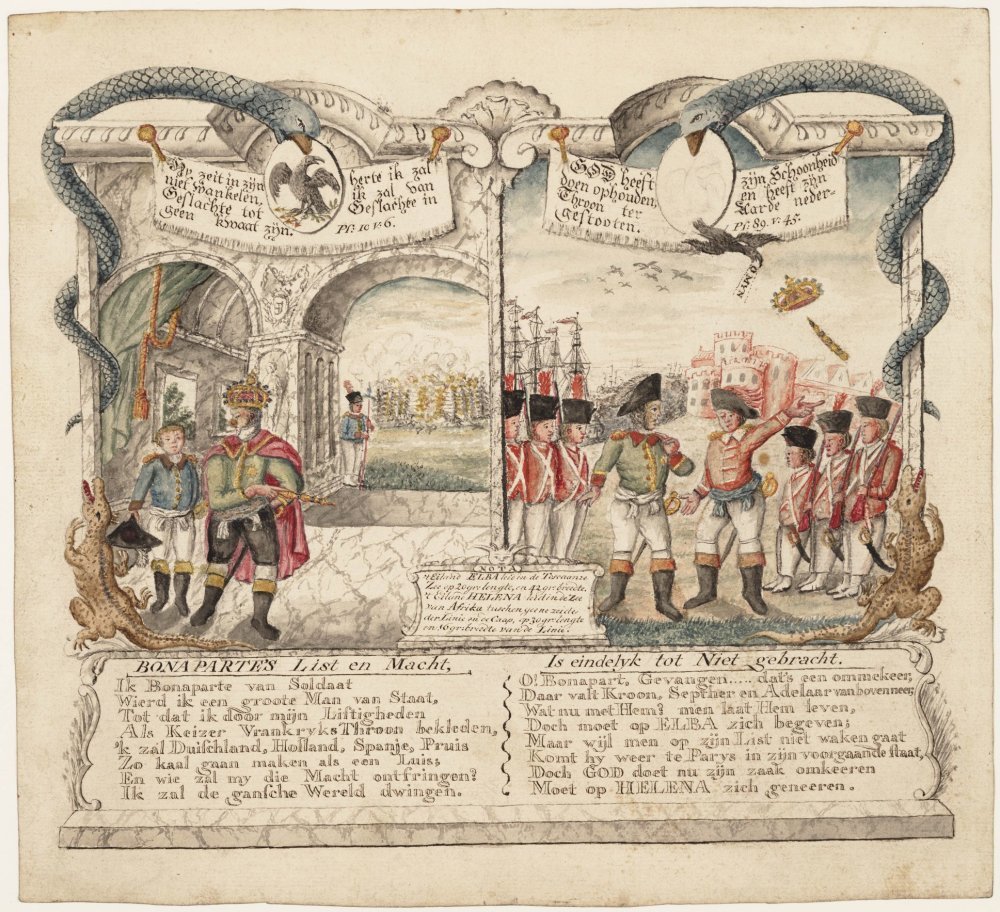 Hy zeit in zijn herte ik zal
niet wankelen, ik zal van
Geslachte tot Geslachte in
geen kwaat zijn.
Ps: 10 v. 6.
GOD heeft zijn Schoonheid
doen ophouden, en heeft zijn
Throon ter Aarde neder-
gestooten. Ps: 89. v: 45.
O MYN
NOTA
't Eiland ELBA leid in de Toscaanze
Zee op 20 gr: lengte, en 42 gr: breedte.
't Eiland HELENA leid in de Zee
van Afrika tuschen geene zeide
der Linie en de Caap, op 30 gr: lengte
en 16 gr: breedte van de Linie.
BONAPARTE'S List en Macht,
Ik Bonaparte van Soldaat
Wierd ik een groote Man van Staat,
Tot dat ik door mijn Listigheden
Als Keizer VrankryksThroon bekleden,
'k zal Duischland, Holland, Spanje, Pruis
Zo kaal gaan maken als een Luis;
En wie zal my die Macht ontfringen?
Ik zal de gansche Wereld dwingen.
Is eindelyk tot Niet gebracht.
O! Bonapart, Gevangen..... dat's een ommekeer,
Daar valt Kroon, Septher en Adelaar van boven neer,
Wat nu met Hem? men laat Hem leven,
Doch moet op ELBA zich begeven;
Maar wijl men op zijn List niet waken gaat
Komt hy weer te Parys in zijn voorgaande staat,
Doch GOD doet nu zijn zaak omkeeren
Moet op HELENA zich geneeren.